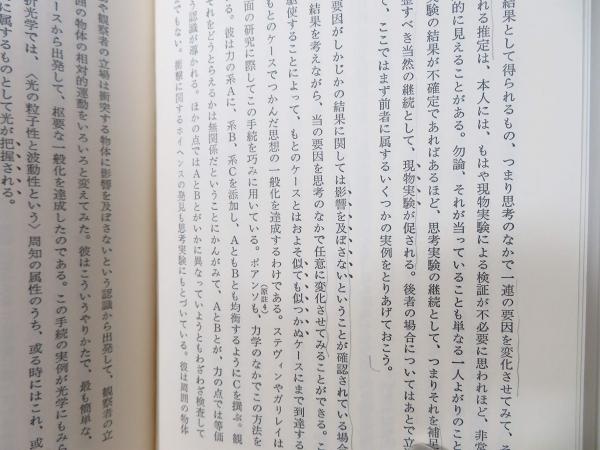 結果として得られるもの、つまり思考のなかで一連の要因を変化させてみて、そ
れる推定は、本人には、もはや現物実験による検証が不必要に思われるほど、非常
的に見えることがある。勿論、それが当っていることも単なる一人よがりのこと
験の結果が不確定であればあるほど、思考実験の継続として、つまりそれを補足
整すべき当然の継続として、現物実験が促される。後者の場合についてはあとで立
て、ここではまず前者に属するいくつかの実例をとりあげておこう。
要因がしかじかの結果に関しては影響を及ぼさないということが確認されている場合
結果を考えながら、当の要因を思考のなかで任意に変化させてみることができる。こ
駆使することによって、もとのケースとはおよそ似ても似つかぬケースにまで到達する
もとのケースでつかんだ思想の一般化を達成するわけである。ステヴィンやガリレイは
面の研究に際してこの手続を巧みに用いている。ポアンソも、力学のなかでこの方法を
(原註4)
る。彼は力の系Aに、系B、系Cを添加し、AともBとも均衡するようにCを撰ぶ。観
それをどうとらえるかは無関係だということにかんがみて、AとBとが、力の点では等価
う認識が導かれる。ほかの点ではAとBとがいかに異なっていようともわざわざ検査して
でもない。衝撃に関するホイヘンスの発見も思考実験にもとづいている。彼は周囲の物体
や観察者の立場は衝突する物体に影響を及ぼさないという認識から出発して、観察者の立
囲の物体の相対的運動をいろいろと変えてみた。彼はこういうやりかたで、最も簡単な、
ースから出発して、枢要な一般化を達成したのである。この手続の実例が光学にもみら
折光学では、〈光の粒子性と波動性という〉周知の属性のうち、或る時にはこれ、或
に属するものとして光が把握される。